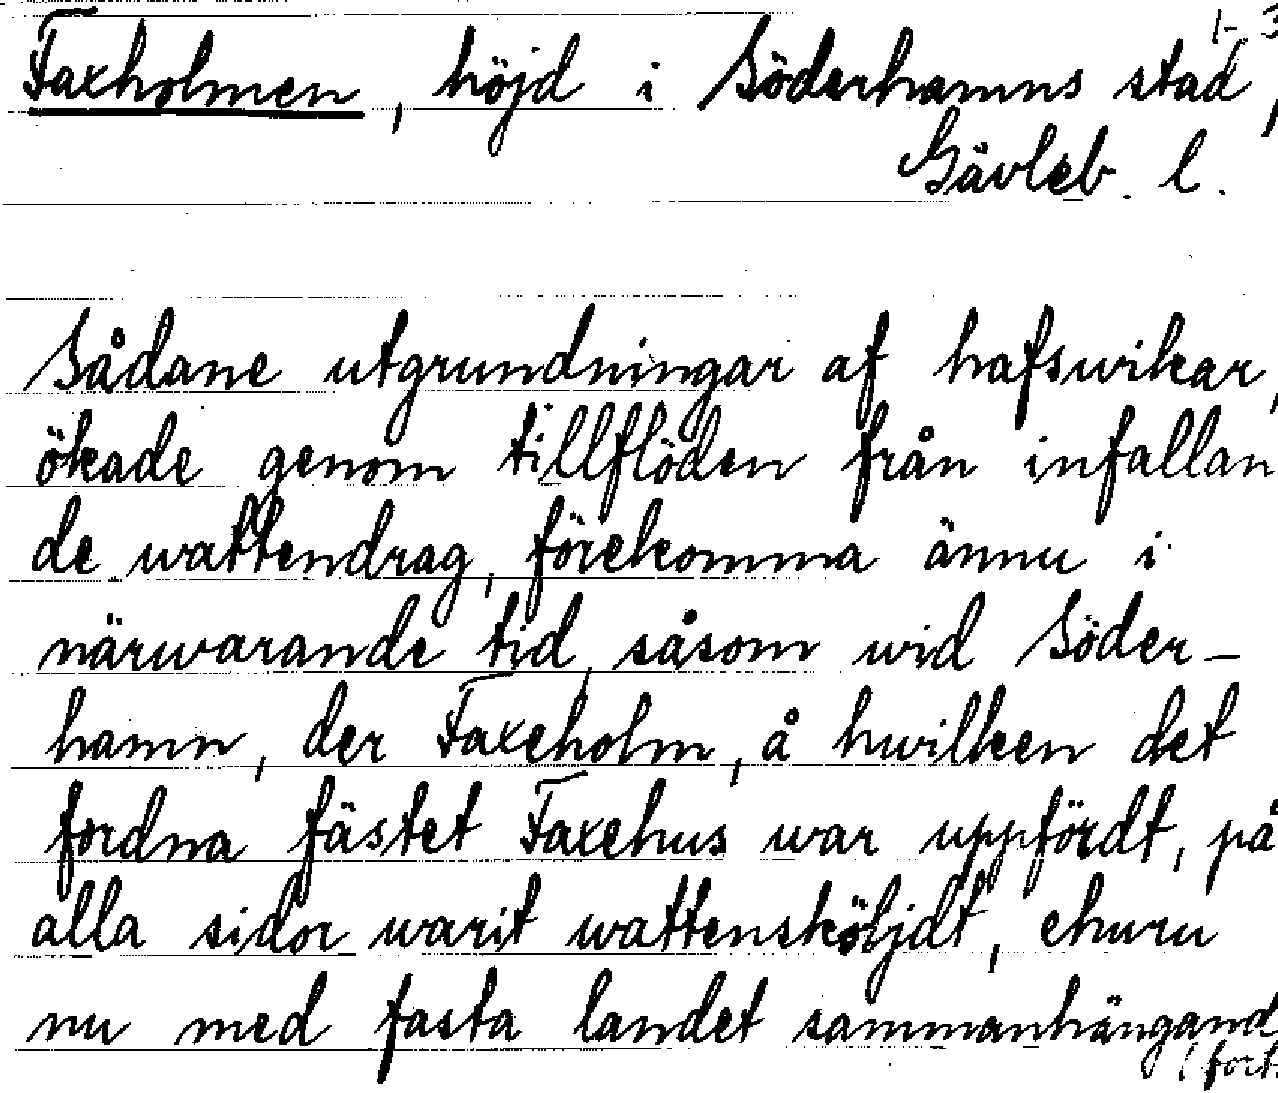 1-3
Faxholmen, höjd i Söderhamns stad,
Gävleb. l.
Sådane utgrundningar af hafswikar,
ökade genom tillflöden från infallan
de wattendrag, förekomma ännu i
närwarande tid, såsom wid Söder-
hamn, der Faxeholm, å hwilken det
fordna fästet Faxehus war uppfördt, på
alla sidor warit wattensköljdt, ehuru
nu med fasta landet sammanhängand
(fort.